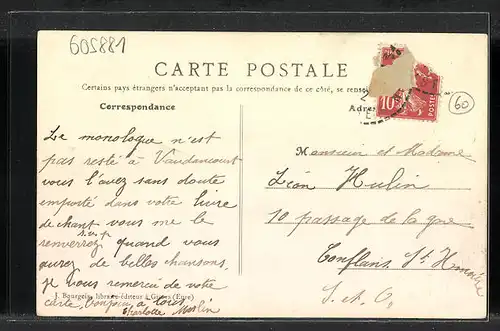 605881
CARTE POSTALE
Certains pays étrangers n'acceptant pas la correspondance de ce côté, se
Correspondance
10
POSTES
60
Le monologue n'est
pas resté à Vaudancourt
vous l'avez sans doute
emporté dans votre livre
de chant vous me le
s.v.p
renverrez quand vous
aurez de belles chansons,
je vous remercie de votre
carte, bonjour à tous,
Charlotte
J. Bourgeix, libraire-éditeur à Gisors (Eure)
Monsieur et Madame
Léon Hulin
10 passage de la gare
Conflans Ste Honorine
S. et O.